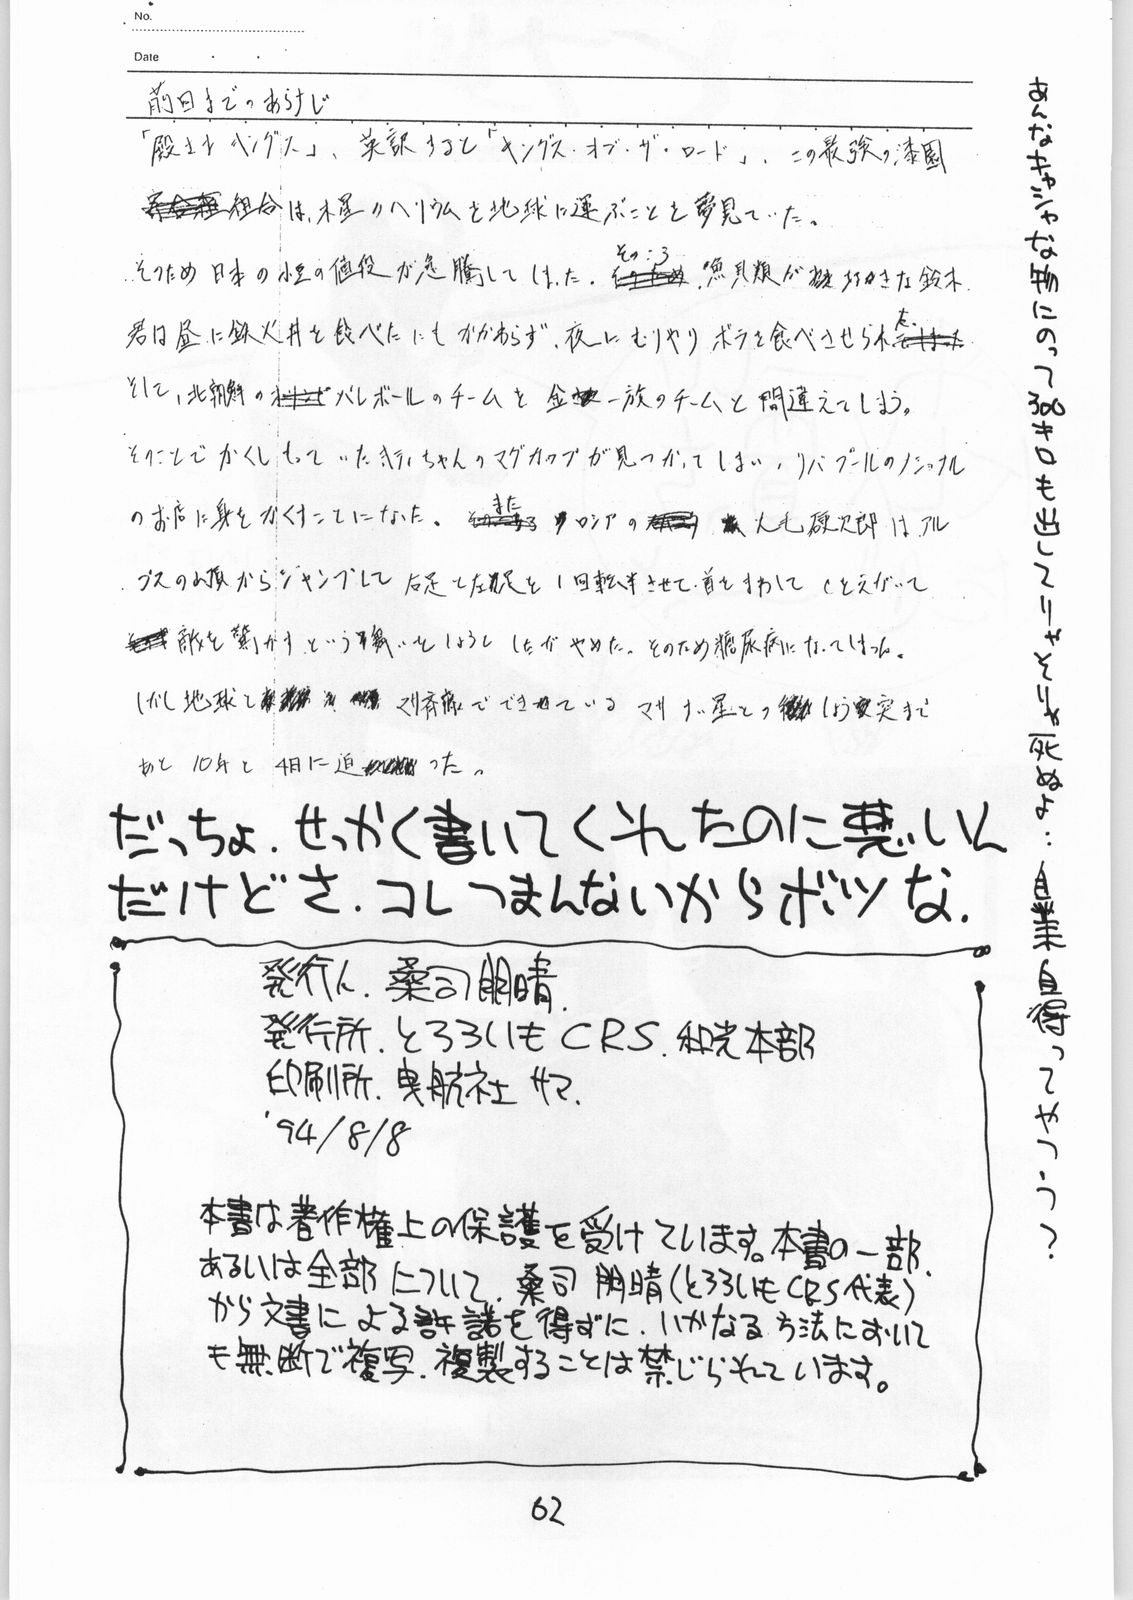 No.
Date
前回までのあらすじ
「殿さまキングス」、英訳すると「キングス・オブ・ザ・ロード」、この最強の漆園
組合は、木星のヘリウムを地球に運ぶことを夢見ていた。
そのため日本の小豆の値段が急騰してしまった。そのころ、魚貝類が好きな鈴木
君は昼に鉄火丼を食べたにもかかわらず、夜にむりやりボラを食べさせられた。
そして、北朝鮮のバレーボールのチームを金一族のチームと間違えてしまう。
そのことでかくしもっていたキティちゃんのマグカップが見つかってしまい、リバプールの
のお店に身をかくすことになった。またロシアの大毛硬次郎はアル
プスの山頂からジャンプして右足と左足を1回転半させて、首をまわして をえがいて
敵を驚かすという をしようとしたがやめた。そのため糖尿病になってしまった。
しかし地球と でできている 星との しょう突まで
あと10年と4日に迫った。
だっちょ、せっかく書いてくれたのに悪いん
だけどさ、コレつまんないからボツな。
発行人、桑司朋晴、
発行所、とろろいもCRS、和光本部
印刷所、曳航社サマ、
'94/8/8
本書は著作権上の保護を受けています。本書の一部、
あるいは全部について、桑司朋晴(とろろいもCRS代表)
から文書による許諾を得ずに、いかなる方法において
も無断で複写、複製することは禁じられています。
あんなキャシャな物にのって300キロも出してりゃそりゃ死ぬよ‥自業自得ってやつう？
62